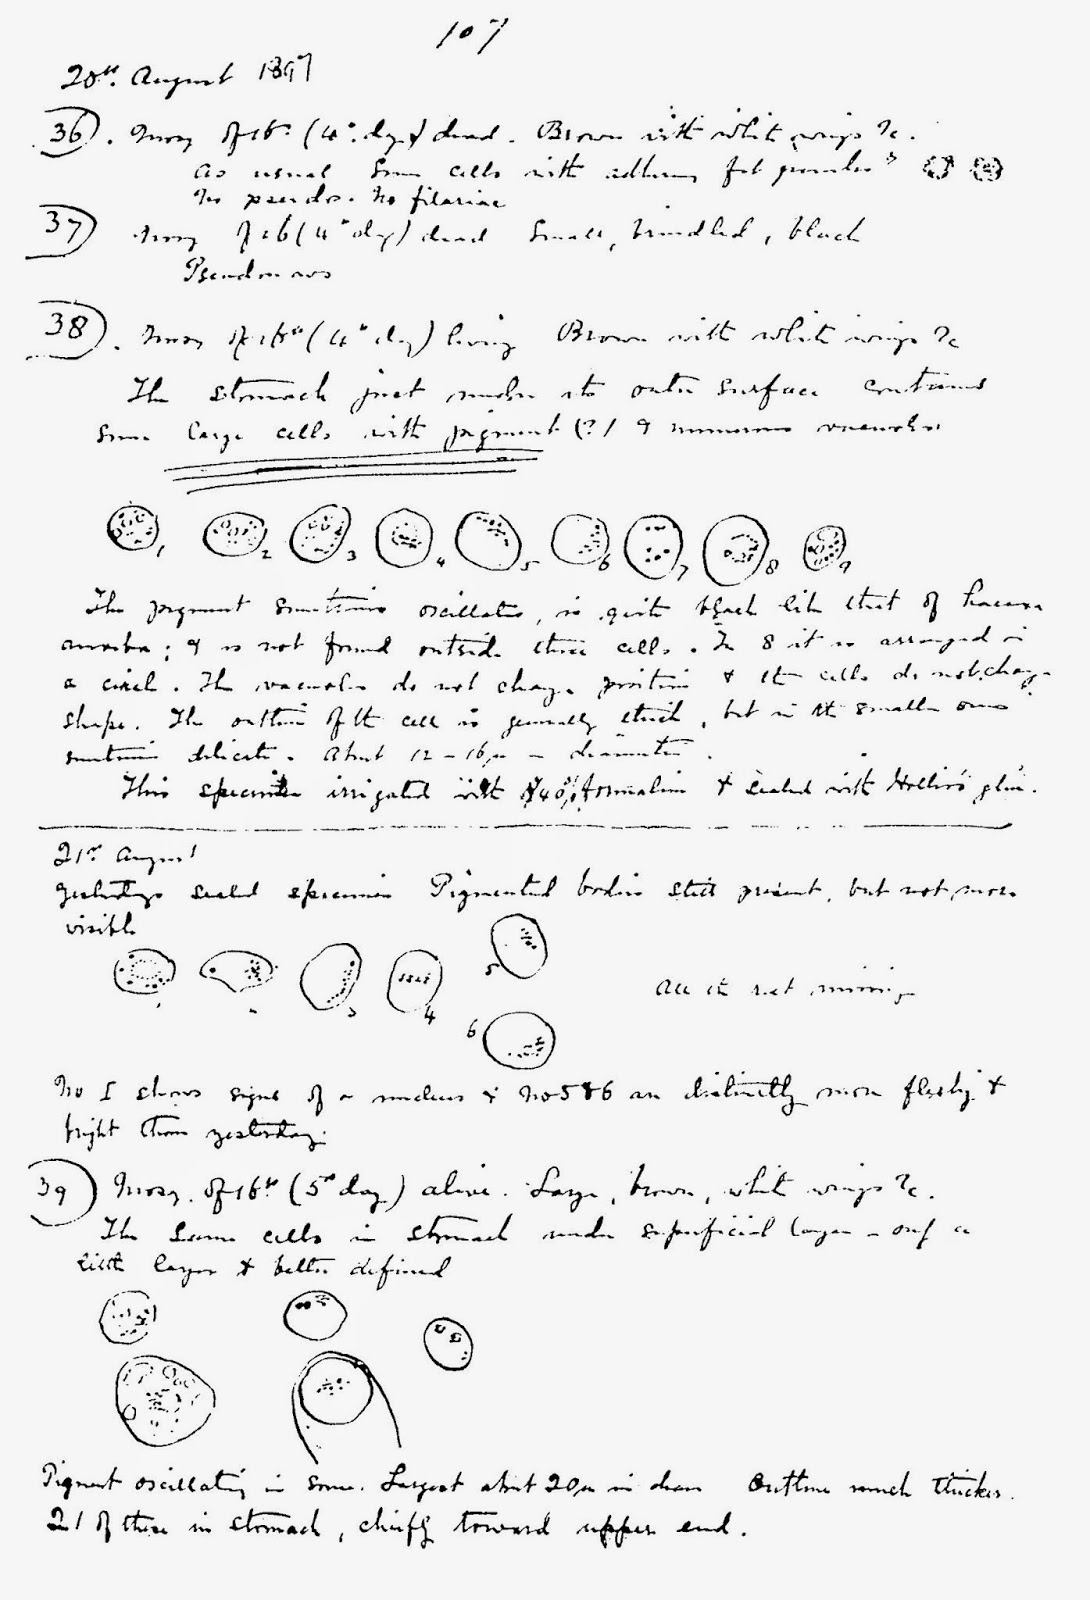 107
20th August 1897
36. Mosq of 16th (4th day) dead. Brown with white wings &c.
As usual some cells with adhering fat granules
No pseudo. No filariae
37 Mosq of 16 (4th day) dead Small, brindled, black
Pseudo nos
38. Mosq of 16th (4th day) living Brown with white wings &c
The stomach just under its outer surface contains
some large cells with pigment (?) & numerous vacuoles
1 2 3 4 5 6 7 8 9
The pigment sometimes oscillates, is quite black like that of
amoeba; & is not found outside these cells. In 8 it is arranged in
a circle. The vacuoles do not change position & the cells do not change
shape. The outline of the cell is generally thick, but in the smaller ones
sometimes delicate. About 12-16µ in diameter.
This specimen irrigated with 40% formalin & sealed with Hollis's glue.
21st August
Yesterdays sealed specimen Pigmented bodies still present, but not more
visible
5
3 4
All the rest missing
6
No 1 shows signs of a nucleus & No 5 & 6 are distinctly more fleshy &
bright than yesterday.
39 Mosq. of 16th (5th day) alive. Large, brown, white wings &c.
The same cells in stomach under superficial layer - only a
little larger & better defined
Pigment oscillating in some. Largest about 20µ in diam Outline much thicker.
21 of these in stomach, chiefly toward upper end.